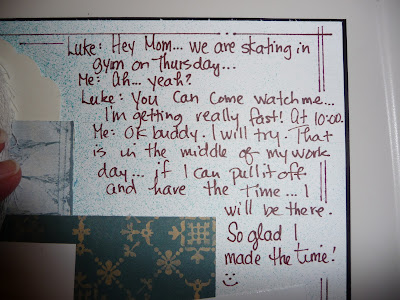 Luke: Hey Mom... we are skating in
gym on Thursday...
Me: Ah... yeah?
Luke: You can come watch me...
I'm getting really fast! At 10:00.
Me: OK buddy. I will try. That
is in the middle of my work
day... if I can pull it off
and have the time... I
will be there.
So glad I
made the time!